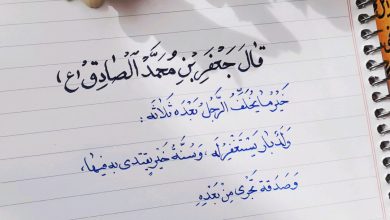 قَالَ جَعْفَرِ بْنِ مُحَمَّدُ الصَّادِقْ (ع)
خَيْرُ مَا يُخَلِّفُ الرَّجُلُ بَعْدَهُ ثَلَاثَه :
وَلَدُ بَارٍ يَسْتَغْفِرُ لَه ، وَسُنَّةُ خَيْرٍ يُقْتَدى بِهِ فِيهَا ،
وَصَدَقَة تَجْرِي مِنْ بَعْدِهِ